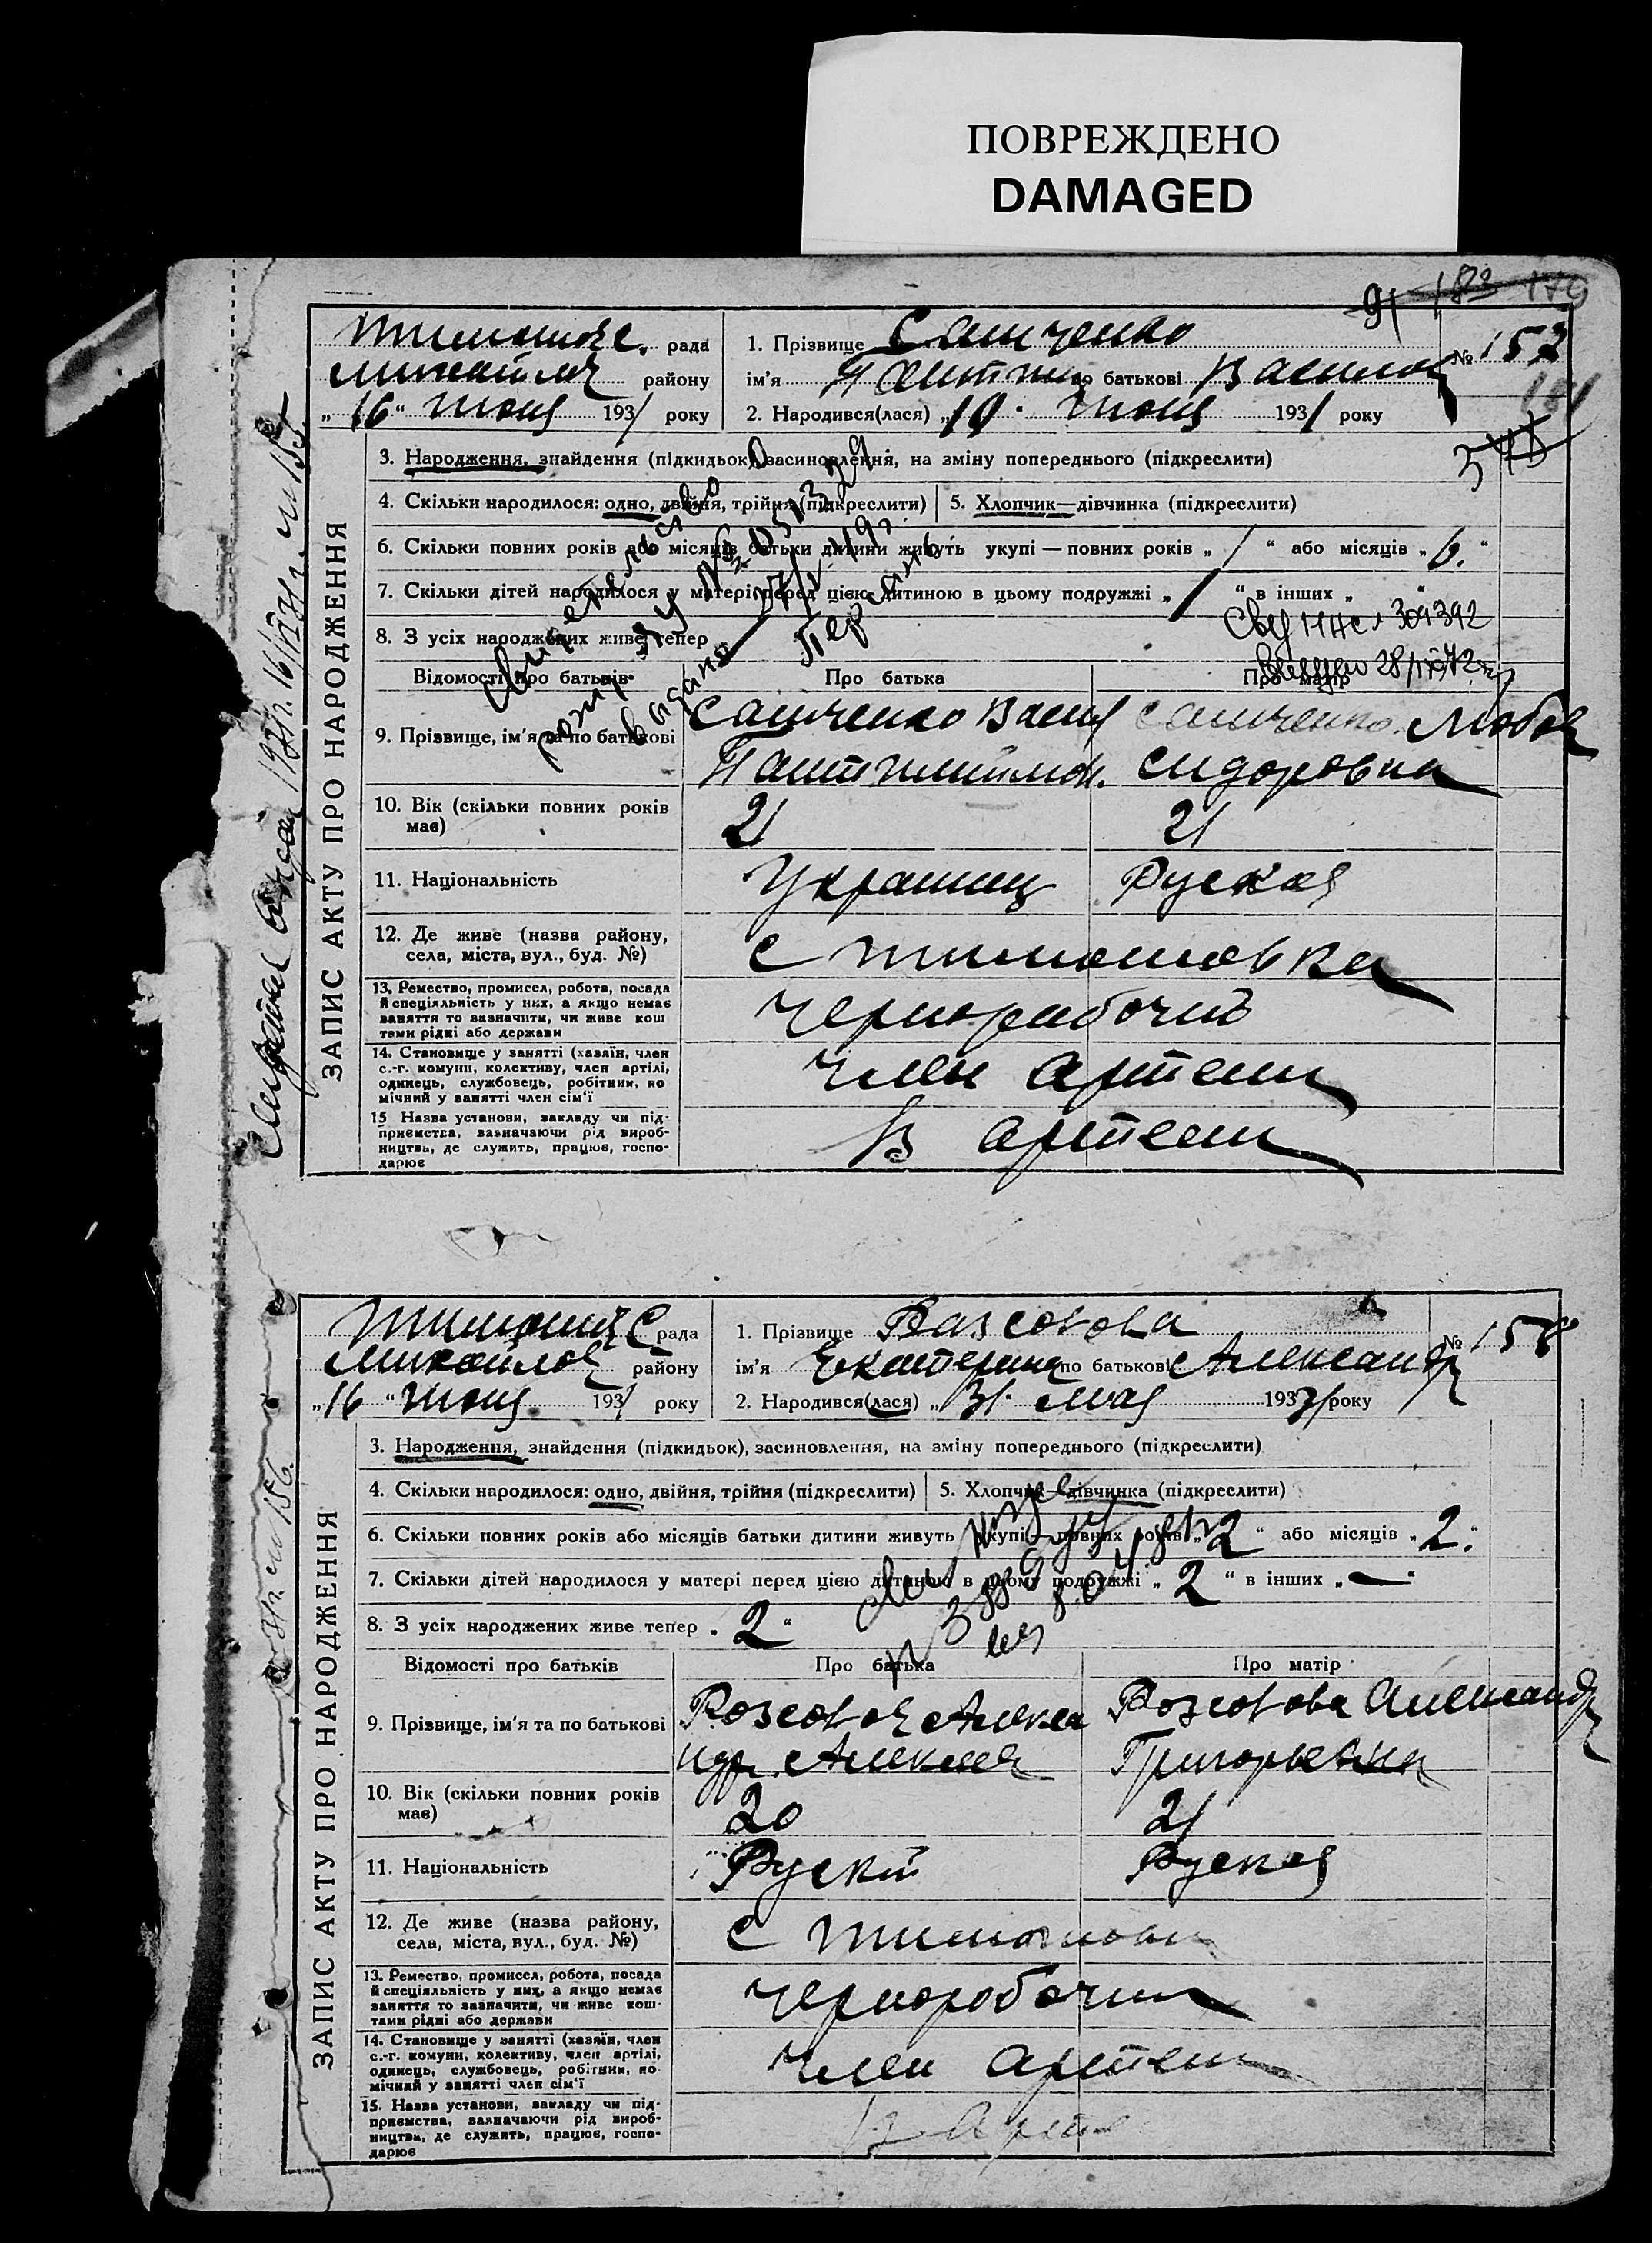 ПОВРЕЖДЕНО
DAMAGED
91 180 179
Тимошовс. рада
Михайлов району
„16“ Июня 1931 року
1. Прізвище Самченко
ім'я по батькові Васильев
2. Народився(лася) „10. Июня 1931 року
№ 157
ЗАПИС АКТУ ПРО НАРОДЖЕННЯ
3. Народження, знайдення (підкидьок), засиновлення, на зміну попереднього (підкреслити)
4. Скільки народилося: одно, двійня, трійня (підкреслити)
5. Хлопчик—дівчинка (підкреслити)
6. Скільки повних років або місяців батьки дитини живуть укупі — повних років „ 1 “ або місяців „ 6. “
7. Скільки дітей народилося у матері перед цією дитиною в цьому подружжі „ “ в інших „ “
8. З усіх народжених живе тепер
309392
28/ 72
Відомості про батьків
Про батька
Про матір
9. Прізвище, ім'я та по батькові
Самченко Васил
Самченко Любов
Сидоровна
10. Вік (скільки повних років має)
21
21
11. Національність
Украинец
Руская
12. Де живе (назва району, села, міста, вул., буд. №)
с Тимошовка
13. Ремество, промисел, робота, посада й спеціяльність у них, а якщо немає заняття то зазначити, чи живе кош тами рідні або держави
чернорабочий
14. Становище у занятті (хазяїн, член с.-г. комуни, колективу, член артілі, одинець, службовець, робітник, по мічний у занятті член сім'ї
член артели
15 Назва установи, закладу чи під-приємства, зазначаючи рід вироб-ництва, де служить, працює, госпо-дарює
В артели
Тимошов С рада
Михайлов району
„16“ Июня 1931 року
1. Прізвище
ім'я Екатерина по батькові Александр
2. Народився(лася) „ 31. мая 1931 року
№ 158
ЗАПИС АКТУ ПРО НАРОДЖЕННЯ
3. Народження, знайдення (підкидьок), засиновлення, на зміну попереднього (підкреслити)
4. Скільки народилося: одно, двійня, трійня (підкреслити)
5. Хлопчик—дівчинка (підкреслити)
6. Скільки повних років або місяців батьки дитини живуть укупі — повних років „ 2 “ або місяців „ 2. “
7. Скільки дітей народилося у матері перед цією дитиною в цьому подружжі „ 2 “ в інших „ — “
8. З усіх народжених живе тепер „ 2 “
Відомості про батьків
Про батька
Про матір
9. Прізвище, ім'я та по батькові
Алекса
Александр
ндр. Алексеев
Григорьевна
10. Вік (скільки повних років має)
20
21
11. Національність
Руский
Руская
12. Де живе (назва району, села, міста, вул., буд. №)
с Тимошовк
13. Ремество, промисел, робота, посада й спеціяльність у них, а якщо немає заняття то зазначити, чи живе кош-тами рідні або держави
чернорабочий
14. Становище у занятті (хазяїн, член с.-г. комуни, колективу, член артілі, одинець, службовець, робітник, по-мічний у занятті член сім'ї
член артели
15. Назва установи, закладу чи під-приємства, зазначаючи рід вироб-ництва, де служить, працює, госпо-дарює
В арте